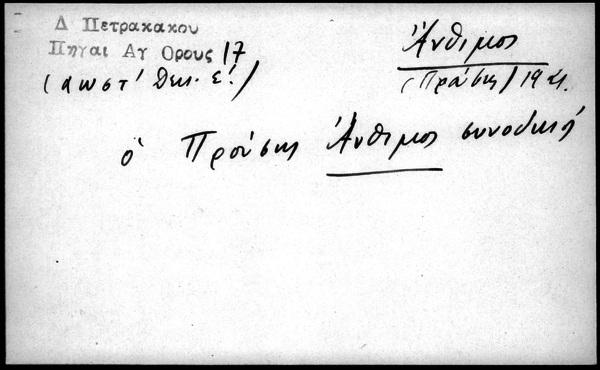 Δ Πετρακακου
Πηγαι Αγ Ορους 17
(αωστ' Δεκ. ε'.)
Ἄνθιμος
(Προύσης)
ὁ Προύσης Ἄνθιμος συνοδικός